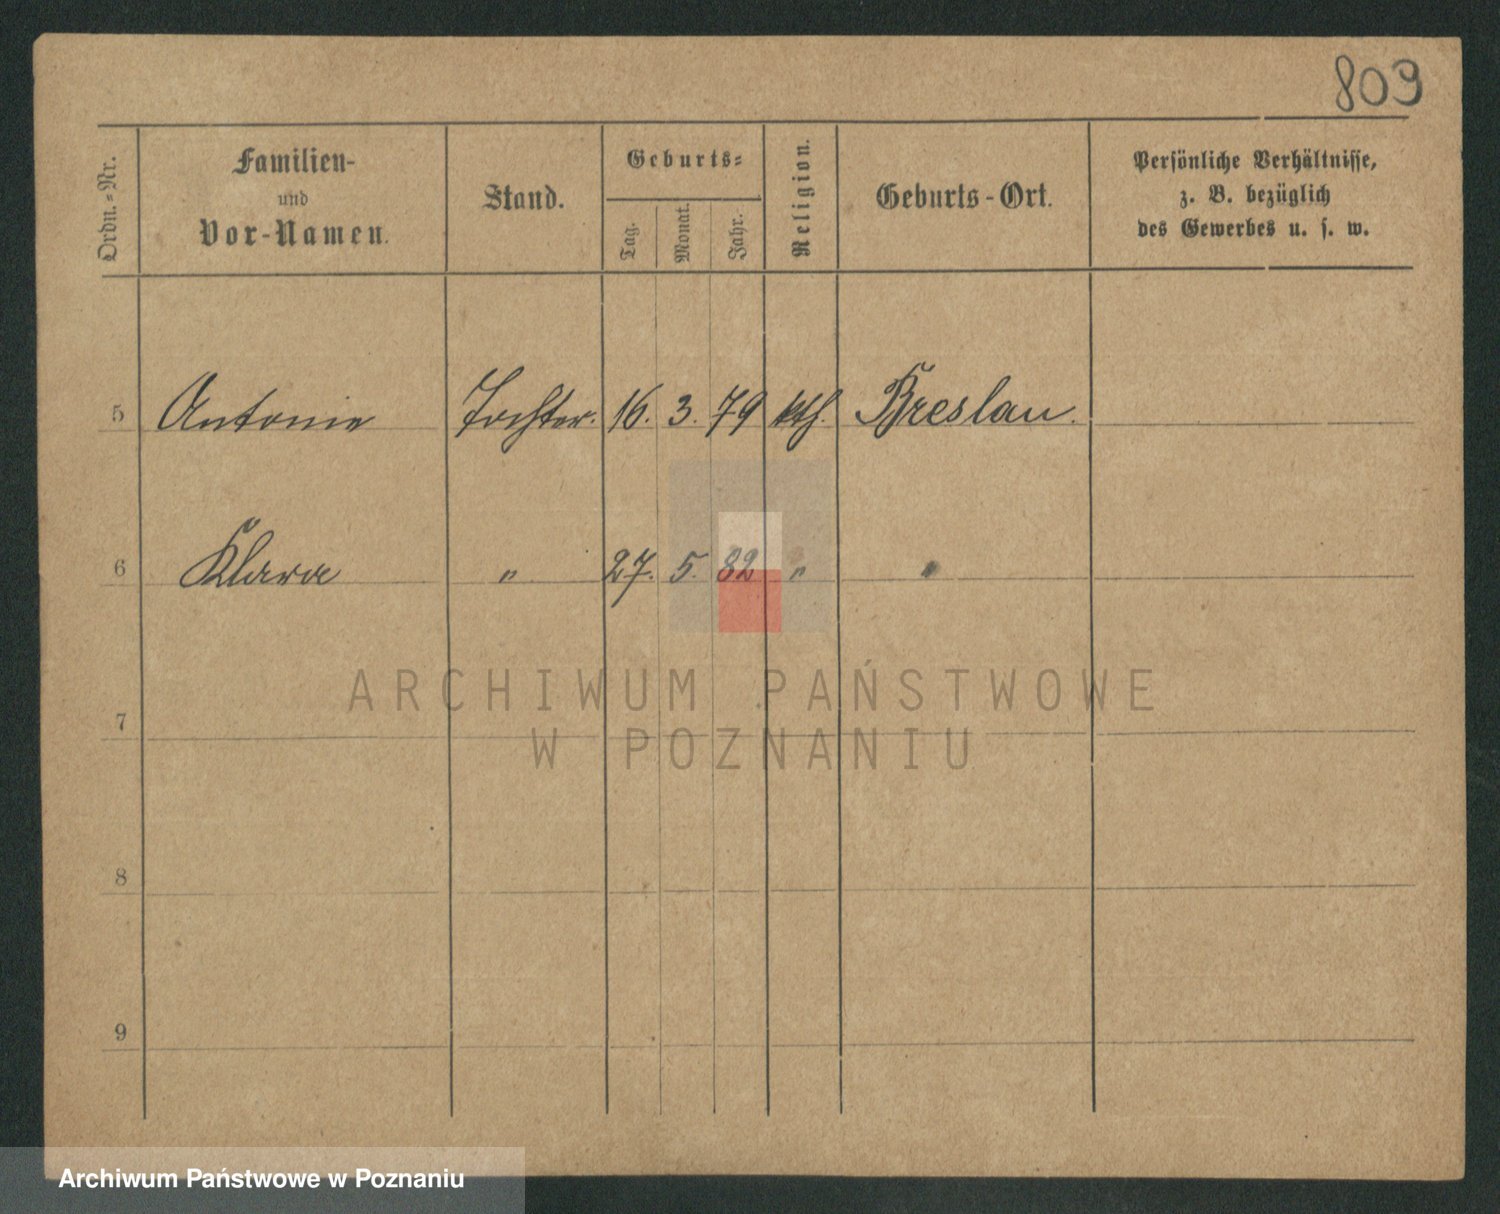 809
Ordn.-Nr. Familien- und Vor-Namen. Stand. Geburts- Tag. Monat. Jahr. Religion. Geburts-Ort. Persönliche Verhältnisse, z. B. bezüglich des Gewerbes u. s. w.
5 Antonie Tochter. 16. 3. 79 kth. Breslau.
6 Klara " 27. 5. 82 " "
7
8
9
ARCHIWUM PAŃSTWOWE
W POZNANIU
Archiwum Państwowe w Poznaniu